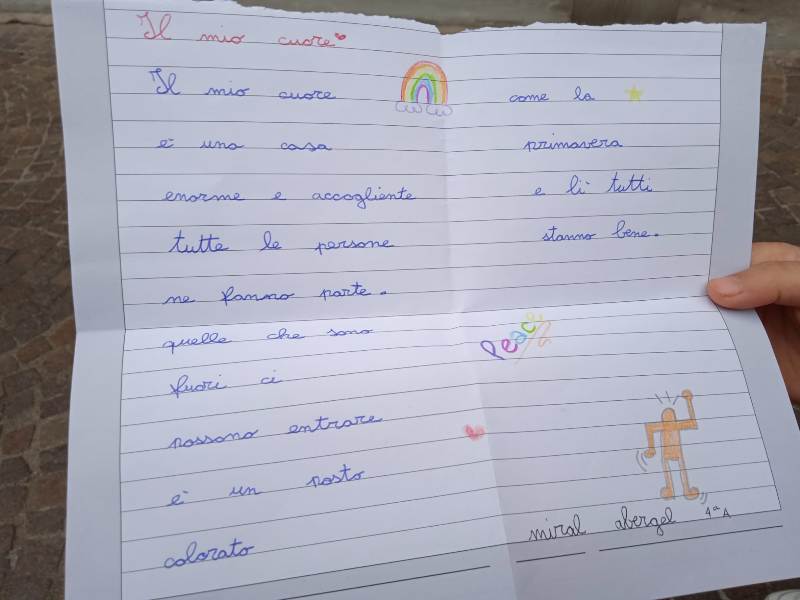 Il mio cuore
Il mio cuore
è una casa
enorme e accogliente
tutte le persone
ne fanno parte.
quelle che sono
fuori ci
possono entrare
è un posto
colorato
come la
primavera
e lì tutti
stanno bene.
Peace
miral abergel 4ª A